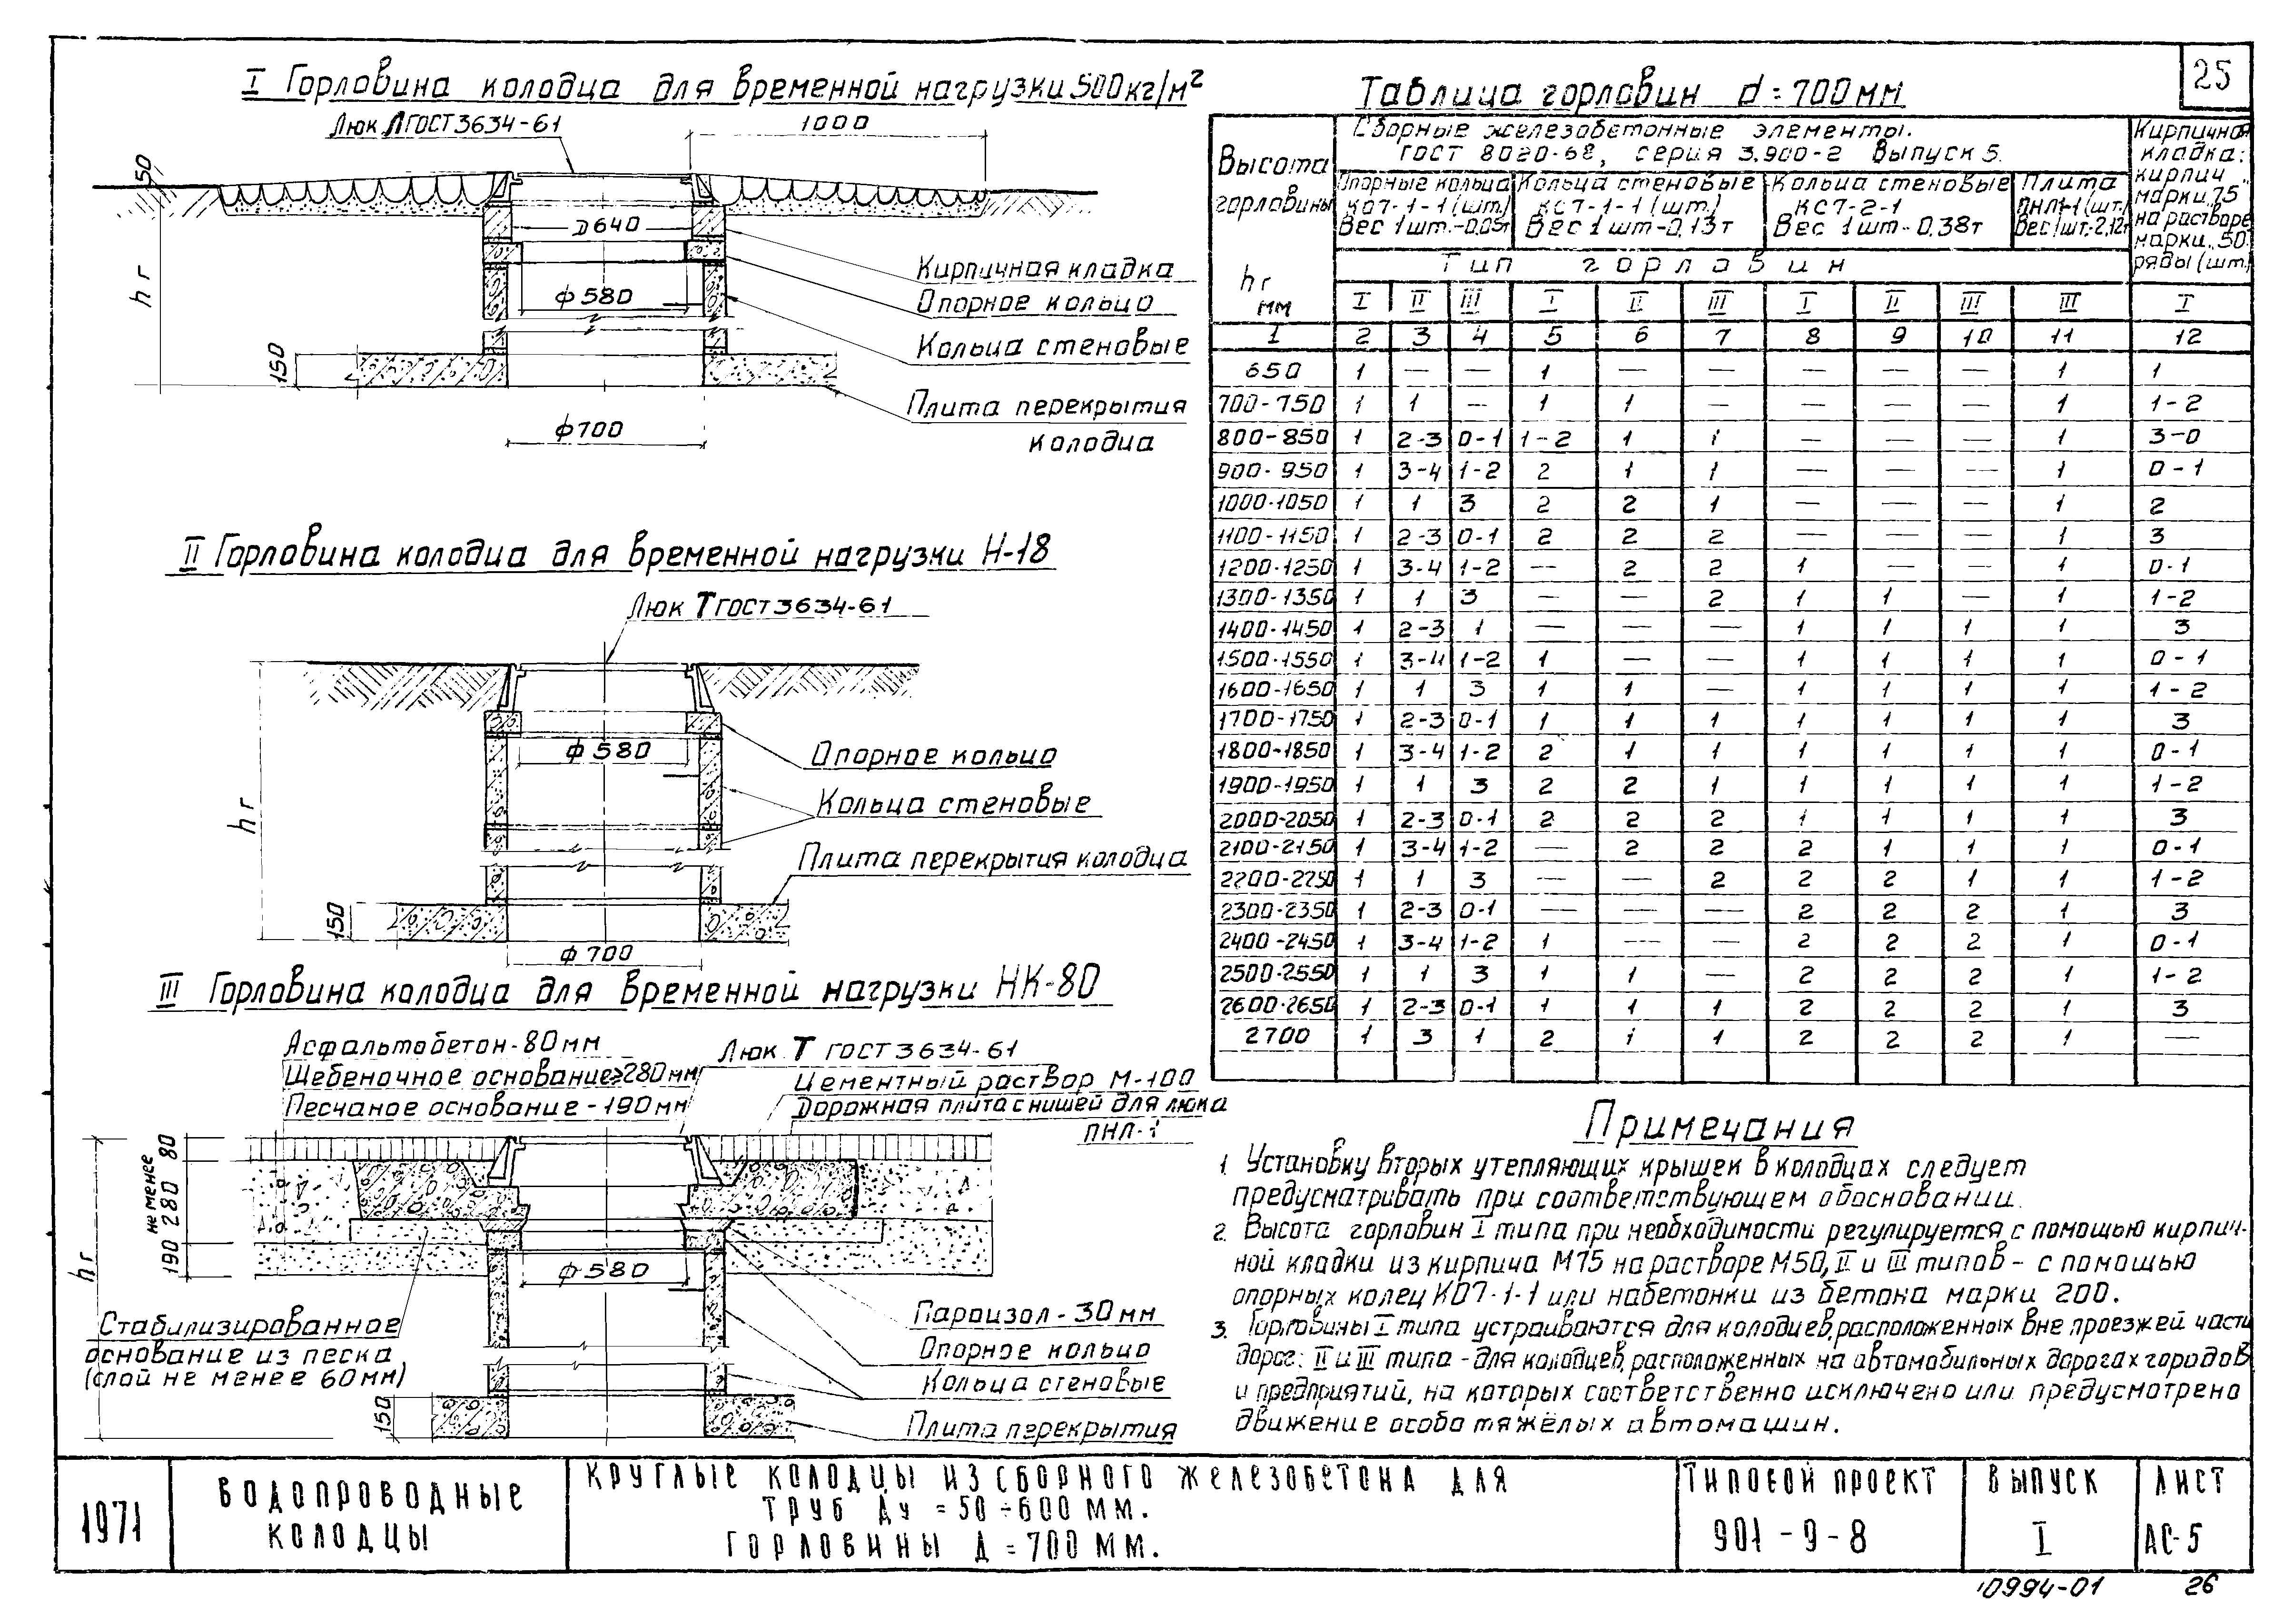 25
I Горловина колодца для временной нагрузки 500кг/м²
Люк Л ГОСТ 3634-61
1000
50
hг
D640
ф580
150
ф700
Кирпичная кладка
Опорное кольцо
Кольца стеновые
Плита перекрытия
колодца
II Горловина колодца для временной нагрузки Н-18
Люк Т ГОСТ 3634-61
hг
ф580
150
ф700
Опорное кольцо
Кольца стеновые
Плита перекрытия колодца
III Горловина колодца для временной нагрузки НК-80
Асфальтобетон-80мм
Щебеночное основание≥280мм
Песчаное основание-190мм
Люк Т ГОСТ 3634-61
Цементный раствор М-100
Дорожная плита с нишей для люка
ПНЛ-1
hг
не менее
190 280 80
ф580
150
Стабилизированное
основание из песка
(слой не менее 60мм)
Пароизол-30мм
Опорное кольцо
Кольца стеновые
Плита перекрытия
Таблица горловин d=700мм
Высота горловины hг мм
Сборные железобетонные элементы.
ГОСТ 8020-68, серия 3.900-2 Выпуск 5.
Опорные кольца КО7-1-1 (шт.) Вес 1шт.-0,05т
Кольца стеновые КС7-1-1 (шт.) Вес 1шт-0,13т
Кольца стеновые КС7-2-1 Вес 1шт-0,38т
Плита ПНЛ-1 (шт.) Вес 1шт.-2,12т
Кирпичная кладка: кирпич марки „75 на растворе марки „50. ряды (шт.)
Тип горловин
I II III I II III I II III III I
1 2 3 4 5 6 7 8 9 10 11 12
650 1 — — 1 — — — — — 1 1
700-750 1 1 — 1 1 — — — — 1 1-2
800-850 1 2-3 0-1 1-2 1 1 — — — 1 3-0
900-950 1 3-4 1-2 2 1 1 — — — 1 0-1
1000-1050 1 1 3 2 2 1 — — — 1 2
1100-1150 1 2-3 0-1 2 2 2 — — — 1 3
1200-1250 1 3-4 1-2 — 2 2 1 — — 1 0-1
1300-1350 1 1 3 — — 2 1 1 — 1 1-2
1400-1450 1 2-3 1 — — — 1 1 1 1 3
1500-1550 1 3-4 1-2 1 — — 1 1 1 1 0-1
1600-1650 1 1 3 1 1 — 1 1 1 1 1-2
1700-1750 1 2-3 0-1 1 1 1 1 1 1 1 3
1800-1850 1 3-4 1-2 2 1 1 1 1 1 1 0-1
1900-1950 1 1 3 2 2 1 1 1 1 1 1-2
2000-2050 1 2-3 0-1 2 2 2 1 1 1 1 3
2100-2150 1 3-4 1-2 — 2 2 2 1 1 1 0-1
2200-2250 1 1 3 — — 2 2 2 1 1 1-2
2300-2350 1 2-3 0-1 — — — 2 2 2 1 3
2400-2450 1 3-4 1-2 1 — — 2 2 2 1 0-1
2500-2550 1 1 3 1 1 — 2 2 2 1 1-2
2600-2650 1 2-3 0-1 1 1 1 2 2 2 1 3
2700 1 3 1 2 1 1 2 2 2 1 —
Примечания
1. Установку вторых утепляющих крышек в колодцах следует
предусматривать при соответствующем обосновании.
2. Высота горловин I типа при необходимости регулируется с помощью кирпич-
ной кладки из кирпича М75 на растворе М50, II и III типов - с помощью
опорных колец КО7-1-1 или набетонки из бетона марки 200.
3. Горловины I типа устраиваются для колодцев, расположенных вне проезжей части
дорог: II и III типа - для колодцев, расположенных на автомобильных дорогах городов
и предприятий, на которых соответственно исключено или предусмотрено
движение особо тяжёлых автомашин.
1971
Водопроводные
колодцы
Круглые колодцы из сборного железобетона для
труб Ду = 50÷600 мм.
Горловины Д = 700 мм.
Типовой проект
901-9-8
Выпуск
I
Лист
АС-5
10994-01
26